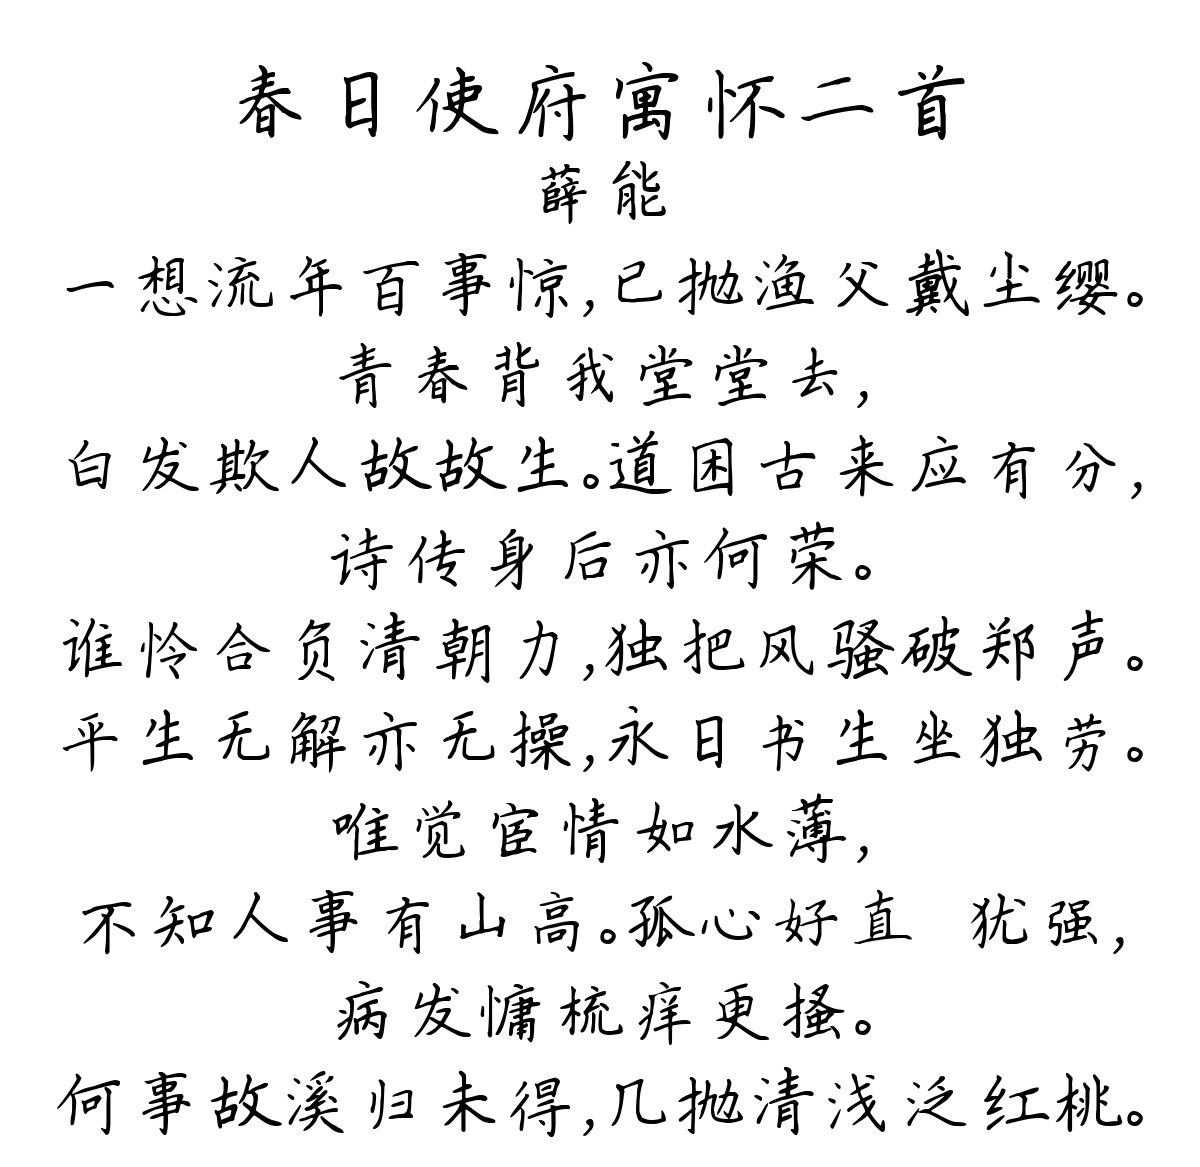 春日使府寓怀二首
薛能
一想流年百事惊,已抛渔父戴尘缨。
青春背我堂堂去,
白发欺人故故生。道困古来应有分,
诗传身后亦何荣。
谁怜合负清朝力,独把风骚破郑声。
平生无解亦无操,永日书生坐独劳。
唯觉宦情如水薄,
不知人事有山高。孤心好直 犹强,
病发慵梳痒更搔。
何事故溪归未得,几抛清浅泛红桃。